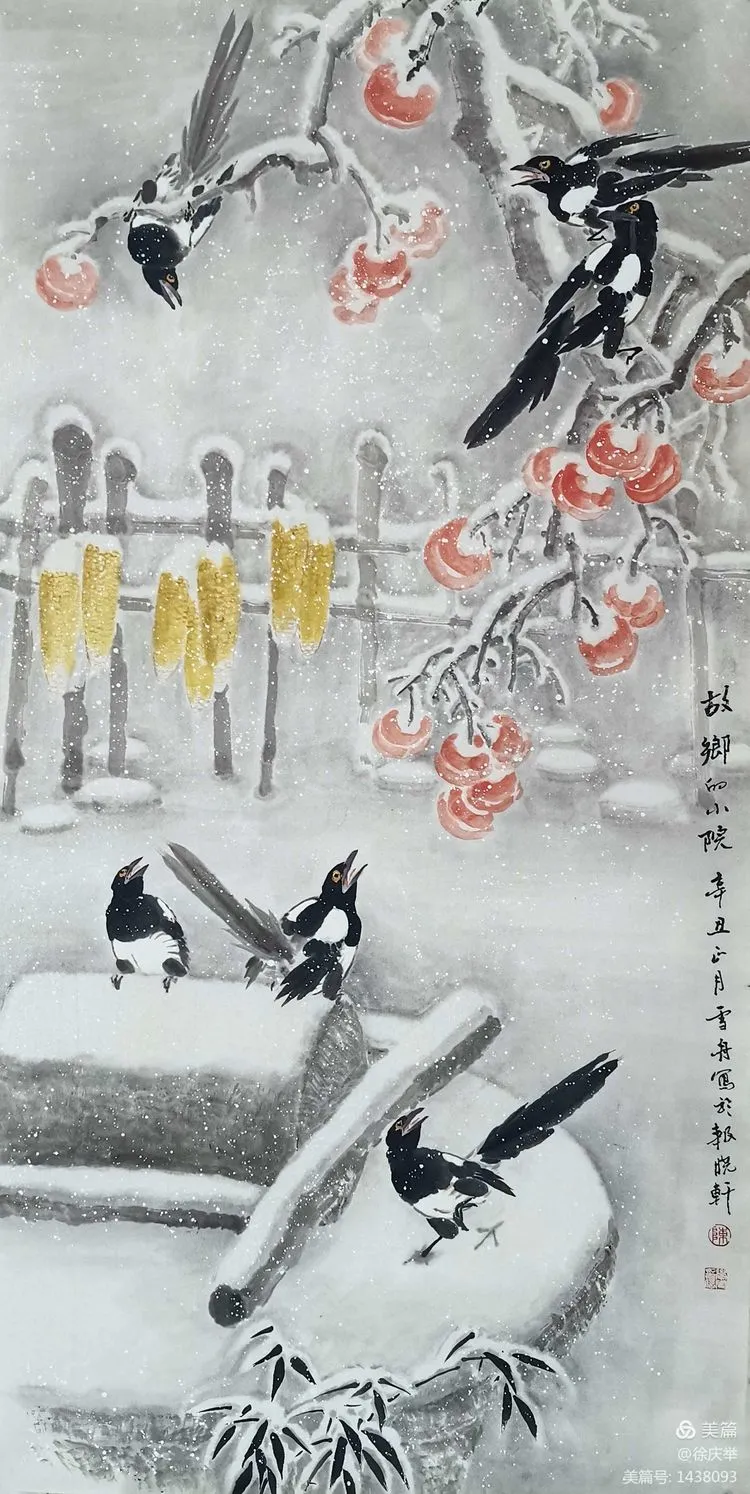 故鄉的小院 辛丑正月雪舟寫於報曉軒
陳
美篇
@徐庆举
美篇号: 1438093